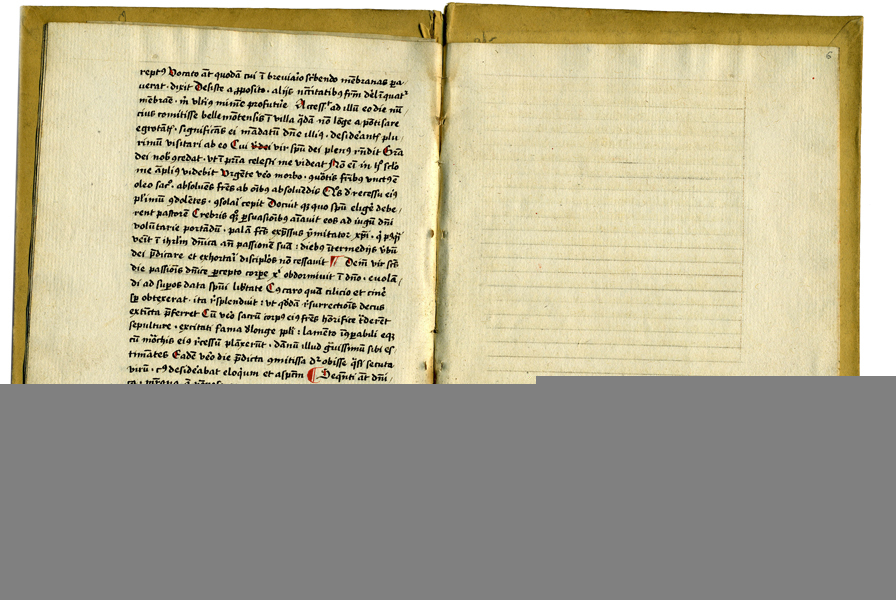 rept⁹ Vocato at̄ quodā cui ī breviaio sc̄bendo mēbranas pa
uerat · dixit Desiste a ꝓposito · alijs
mēbrāe · minime profutur̄e Accessͭ ad illū eo die nū
cius comitisse belle montensis ī villa q̄dā nō lōge a pōtisare
egrotātꝭ · significās ei mādatū dn̄e illiꝰ · desiderantꝭ plu
rimū visitari ab eo Cui v̄dei vir spū dei plenꝰ rn̄dit Grā
dei nobꝭ ꝯcedat · vt ī pr̄ia celesti me videat Nō em̄ in sclo
me āpliꝰ videbit Vrgēte veo morbo · frībꝫ vnctꝰ ē
oleo sac̄º · absoluēs fr̄es ab oībꝫ absoluēdis de recessu eiꝰ
plīmū ꝯdolētes · ꝯsolai cepit Docuit qꝫ quo spū eligē debe
rent pastorē Crebris qꝫ ꝑsuasiōibꝫ aiauit eos ad iugū dn̄i
volūtarie portādū · palā fc̄s exp̄ssus ymitator xp̄i ·
veīt ī ihrlm̄ dn̄ica an̄ passionē suā : diebꝫ ītermedijs v̄bū
dei p̄dicare et exhortai discipl̄os nō cessauit ¶ Dem̄ vir sc̄s
die passiōis dn̄ice ꝑcepto corpe xͥ obdormiuit ī dn̄o · euolā
di ad suꝑos data spūi lib̄tate Cꝰ caro quā cilicio et cinē
sꝑ obtexerat · ita r̄splenduit : vt q̄dā r̄surrectiōis decus
extīcta p̄ferret Cū veo sacrū corpꝰ eiꝰ fr̄es hōrifice t̄derēt
sepulture · excitati fama dilonge ppl̄i : lamēto īꝯꝑabili eqꝫ
cū mōchis eiꝰ r̄cessū plāxerūt · dānū illud g̈uissimū sibi es
timātes Eadē veo die p̄dicta ꝯmitissa dͬ obisse q̄si secuta
virū · cꝰ desideabat eloqiū et asp̄cm̄ ¶ Seq̄nti at̄ dn̄i
6